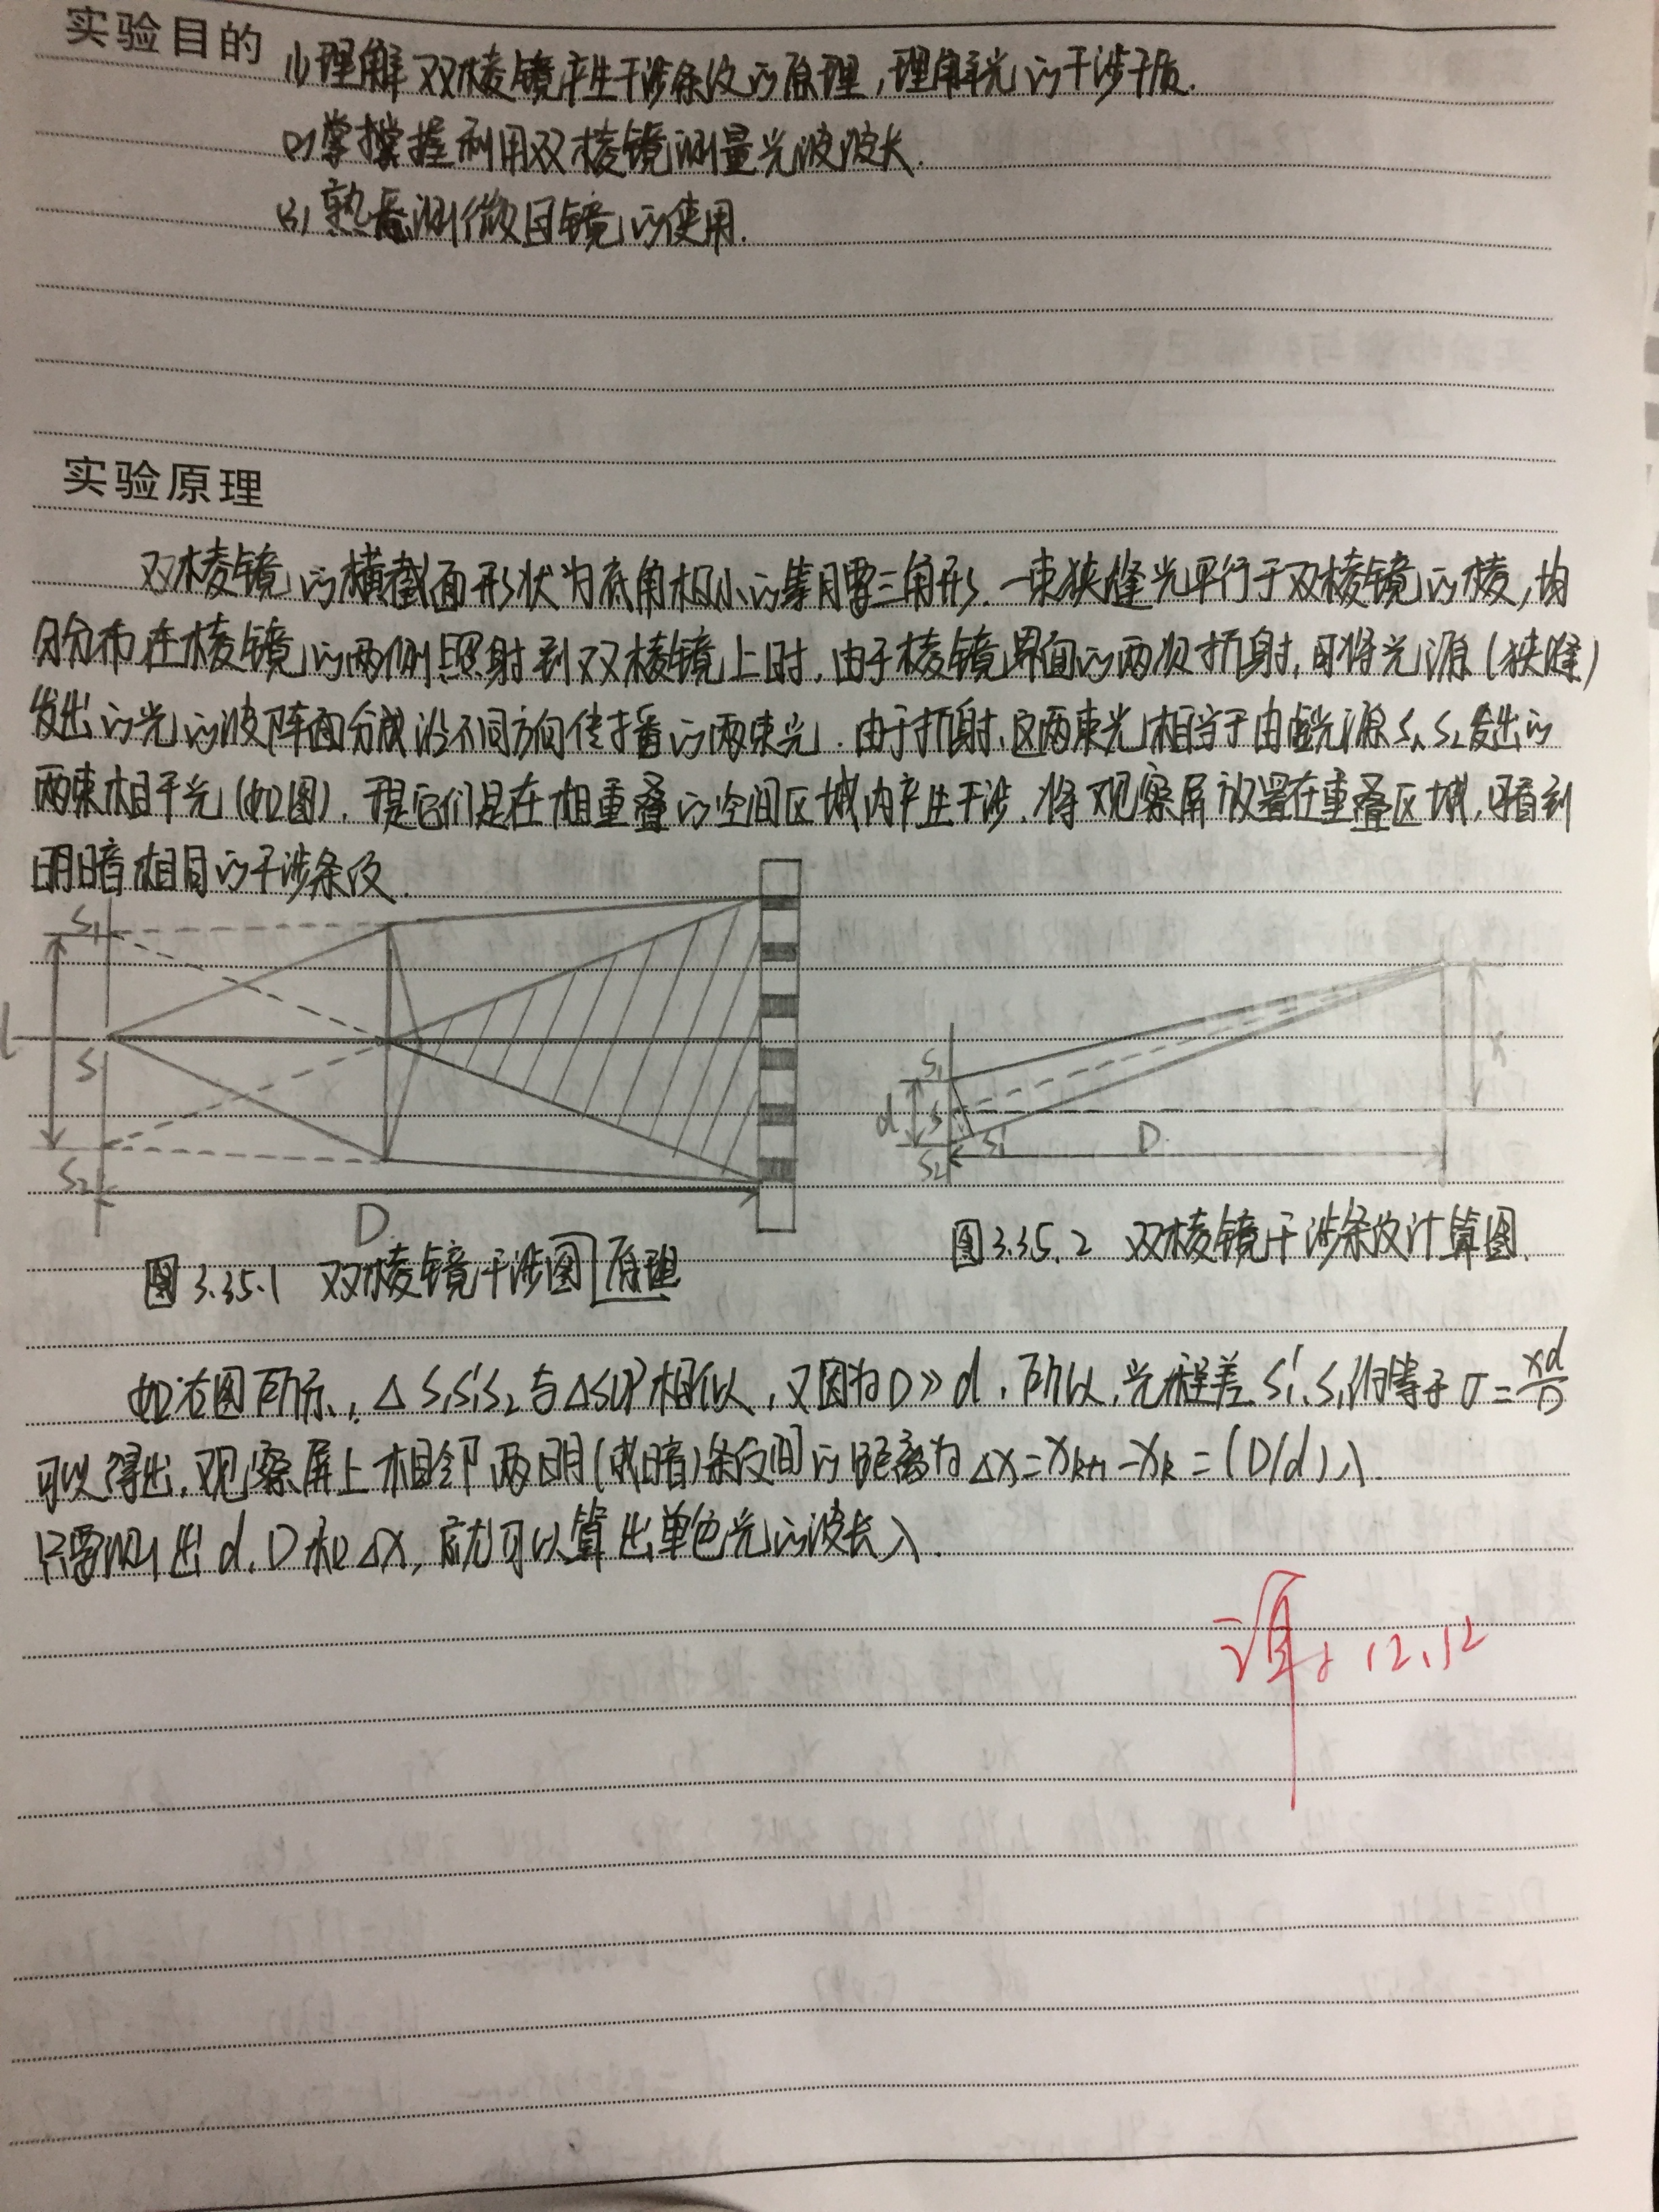 实验目的
(1) 理解双棱镜产生干涉条纹的原理，理解光的干涉干质.
(2) 掌握利用双棱镜测量光波波长.
(3) 熟悉测微目镜的使用.
实验原理
双棱镜的横截面形状为底角极小的等腰三角形. 一束狭缝光平行于双棱镜的棱，均
匀分布在棱镜的两侧照射到双棱镜上时，由于棱镜界面的两次折射，可将光源（狭缝）
发出的光的波阵面分成沿不同方向传播的两束光. 由于折射，这两束光相当于由虚光源S₁、S₂发出的
两束相干光（如图）. 它们是在相重叠的空间区域内产生干涉. 将观察屏放置在重叠区域，可看到
明暗相间的干涉条纹.
S₁
l
S
S₂
D
S₁
d
S
S₂
S₁'
D
x
图3.35.1 双棱镜干涉图原理
图3.35.2 双棱镜干涉条纹计算图.
如右图所示，△S₁S₁'S₂与△SOP相似，又因为D≫d，所以，光程差 等于σ=xd/D
可以得出，观察屏上相邻两明（或暗）条纹间的距离为△x=xₖ₊₁-xₖ=(D/d)λ.
只要测出d、D和△x，就可以算出单色光的波长λ.
12.12